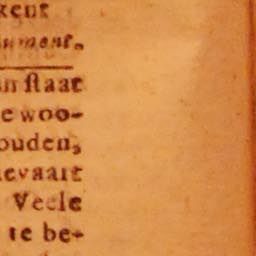 kent
ument.
n ſtaat
e woo-
ouden,
evaart
Veele
te be-